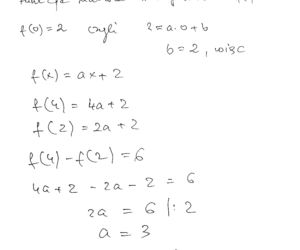 f(0)=2 czyli 2=a·0+b
b=2, więc
f(x)=ax+2
f(4)=4a+2
f(2)=2a+2
f(4)-f(2)=6
4a+2-2a-2=6
2a=6 |:2
a=3